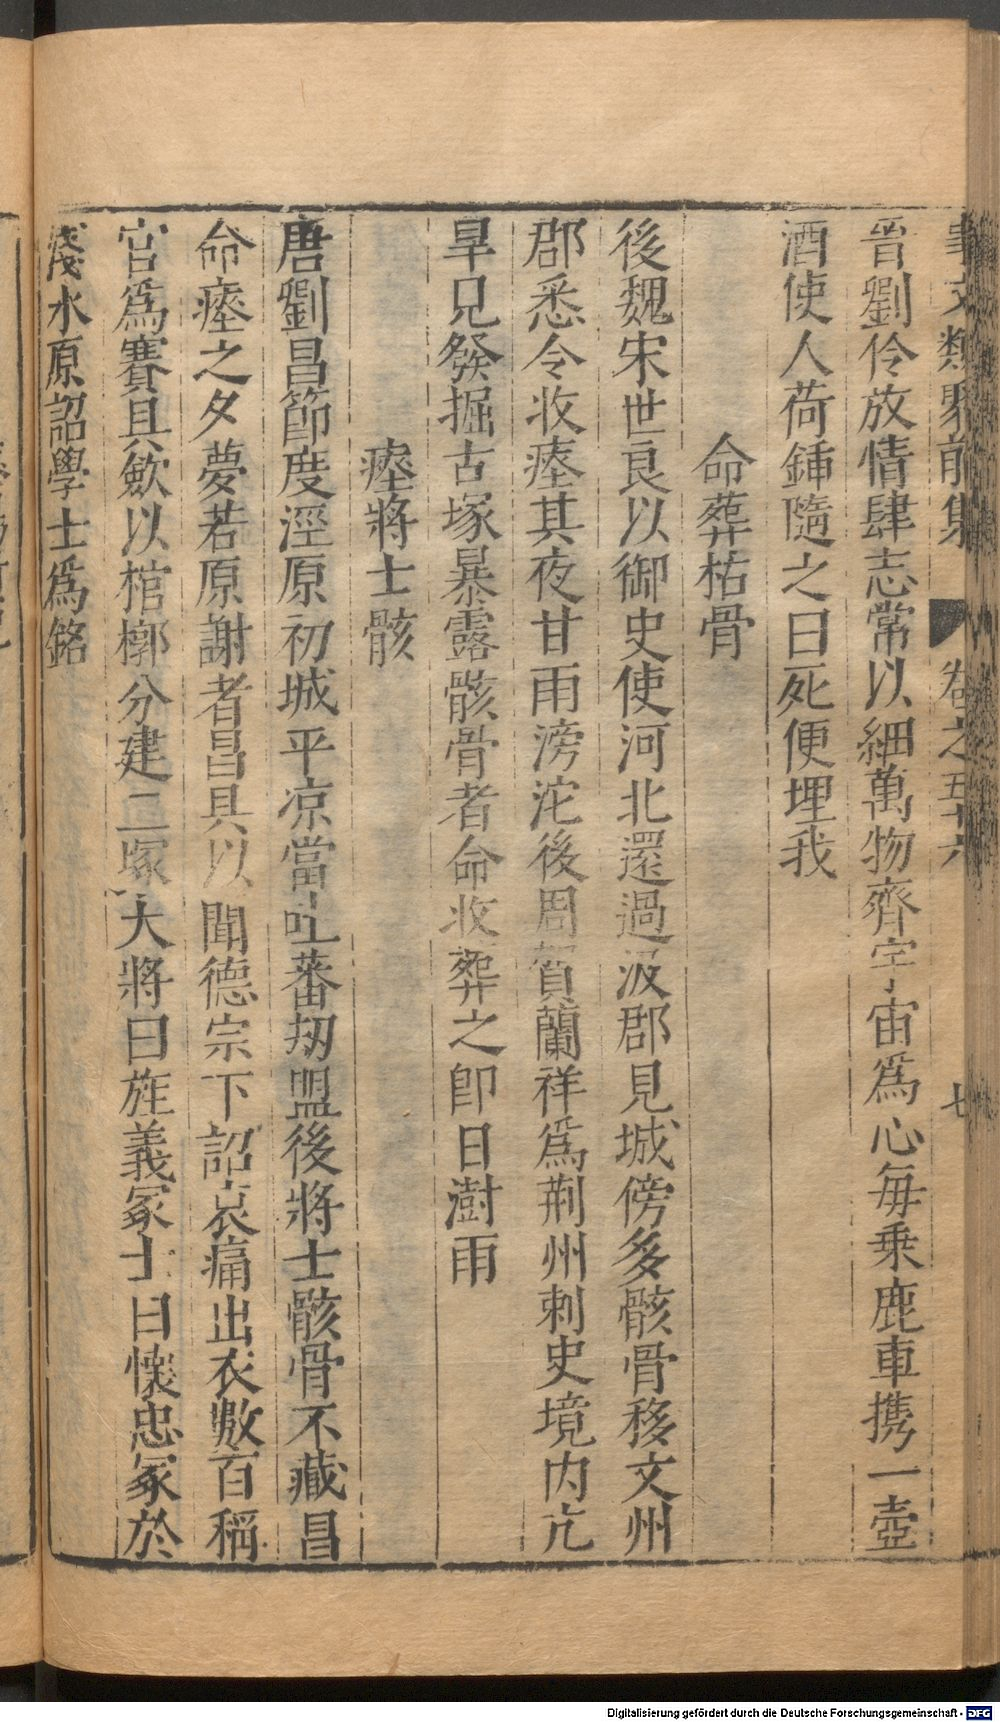 事文類聚前集 卷之五十六 七
晉劉伶放情肆志常以細萬物齊宇宙爲心每乗鹿車携一壺
酒使人荷鍤隨之曰死便埋我
命葬枯骨
後魏宋世良以御史使河北還過汲郡見城傍多骸骨移文州
郡悉令收瘞其夜甘雨滂沱後周賀蘭祥爲荆州刺史境内亢
旱見發掘古塚暴露骸骨者命收葬之卽日澍雨
瘞將士骸
唐劉昌節度涇原初城平凉當吐蕃刼盟後將士骸骨不藏昌
命瘞之夕夢若原謝者昌具以聞德宗下詔哀痛出衣數百稱
官爲賽具歛以棺槨分建二塚大將曰旌義冢士曰懷忠冢於
淺水原詔學士爲銘
Digitalisierung gefördert durch die Deutsche Forschungsgemeinschaft - DFG